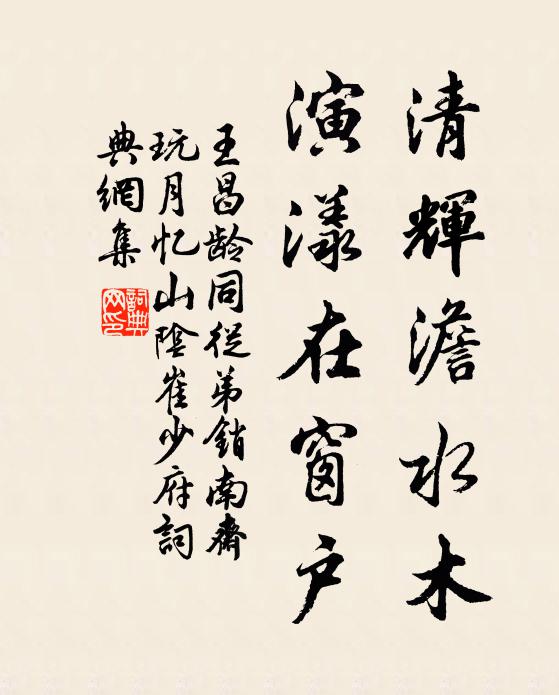 清輝澹水木
演漾在窗户
王昌龄同從弟銷南齋
玩月忆山陰崔少府詞
典網集
詞典网印